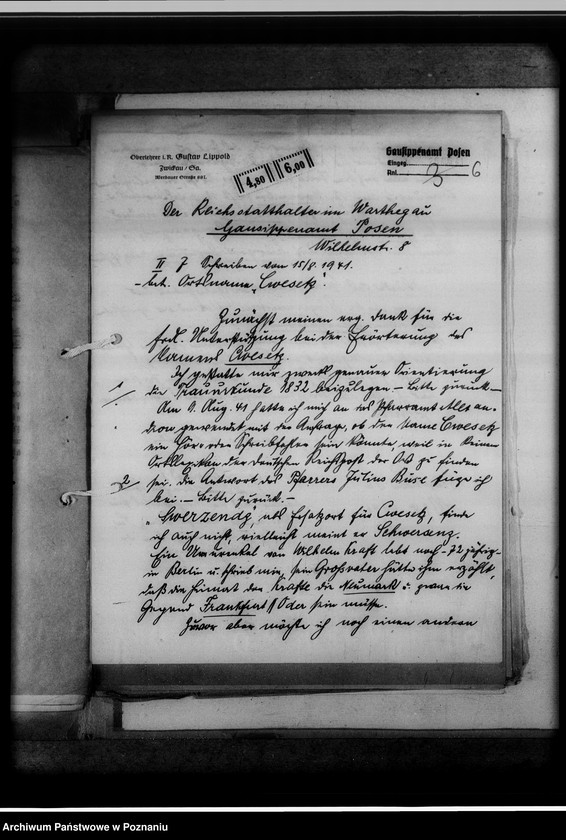 Oberlehrer i. R. Gustav Lippold
Zwickau/Sa.
Werdauer Straße 681.
4,80 6,00
Gausippenamt Posen
Eingeg.
Anl. 6
Der Reichsstatthalter im Warthegau
Gausippenamt Posen
Wilhelmstr. 8
II 7 Schreiben vom 15/8. 1941.
- betr. Ortsname „Cwesetz".
Zunächst meinen erg. Dank für die
frdl. Unterstützung bei der Erörterung des
Namens Cwesetz.
Ich gestatte mir zwecks genauer Orientierung
1 die Trauurkunde 1832 beizulegen – bitte zurück –
Am 9. Aug. 41 hatte ich mich an das Pfarramt Alexan-
drow gewendet mit der Anfrage, ob der Name Cwesetz
ein Hör- oder Schreibfehler sein könnte, weil in keinem
Ortslexikon der deutschen Reichspost der Ort zu finden
2 sei. Die Antwort des Pfarrers Julius Buse füge ich
bei. – Bitte zurück. –
„Swerzendz", als Ersatzort für Cwesetz, finde
ich auch nicht, vielleicht meint er Schwersenz.
Ein Urenkel von Wilhelm Kraft lebt noch – 72 jährig –
in Berlin u. schrieb mir, sein Großvater hätte ihm erzählt,
daß die Heimat der Krafts die Neumark u. zwar die
Gegend Frankfurt/Oder sein müsse.
Zuvor aber möchte ich noch einen anderen
Archiwum Państwowe w Poznaniu